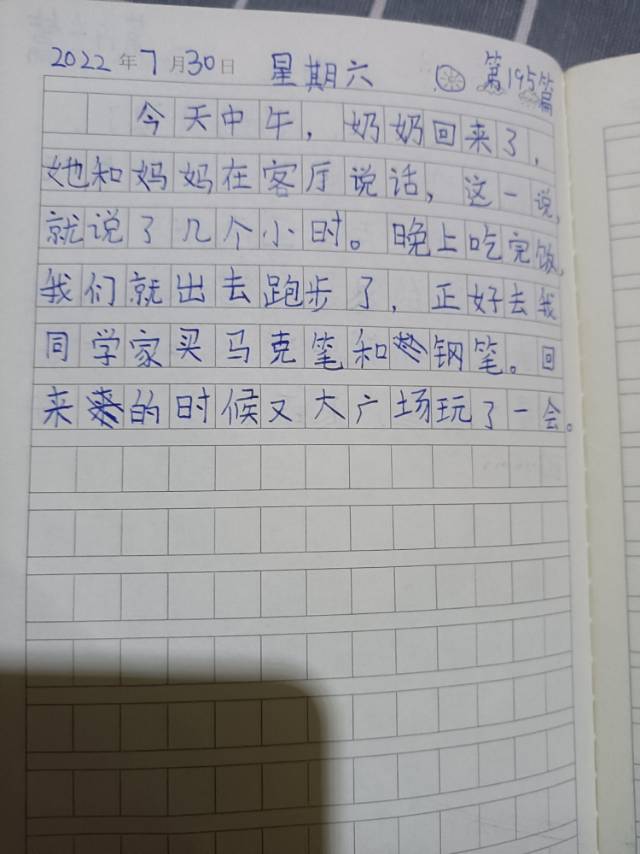 2022年7月30日 星期六 第195篇
今天中午，奶奶回来了，
她和妈妈在客厅说话，这一说，
就说了几个小时。晚上吃完饭，
我们就出去跑步了，正好去我
同学家买马克笔和钢笔。回
来的时候又大广场玩了一会。